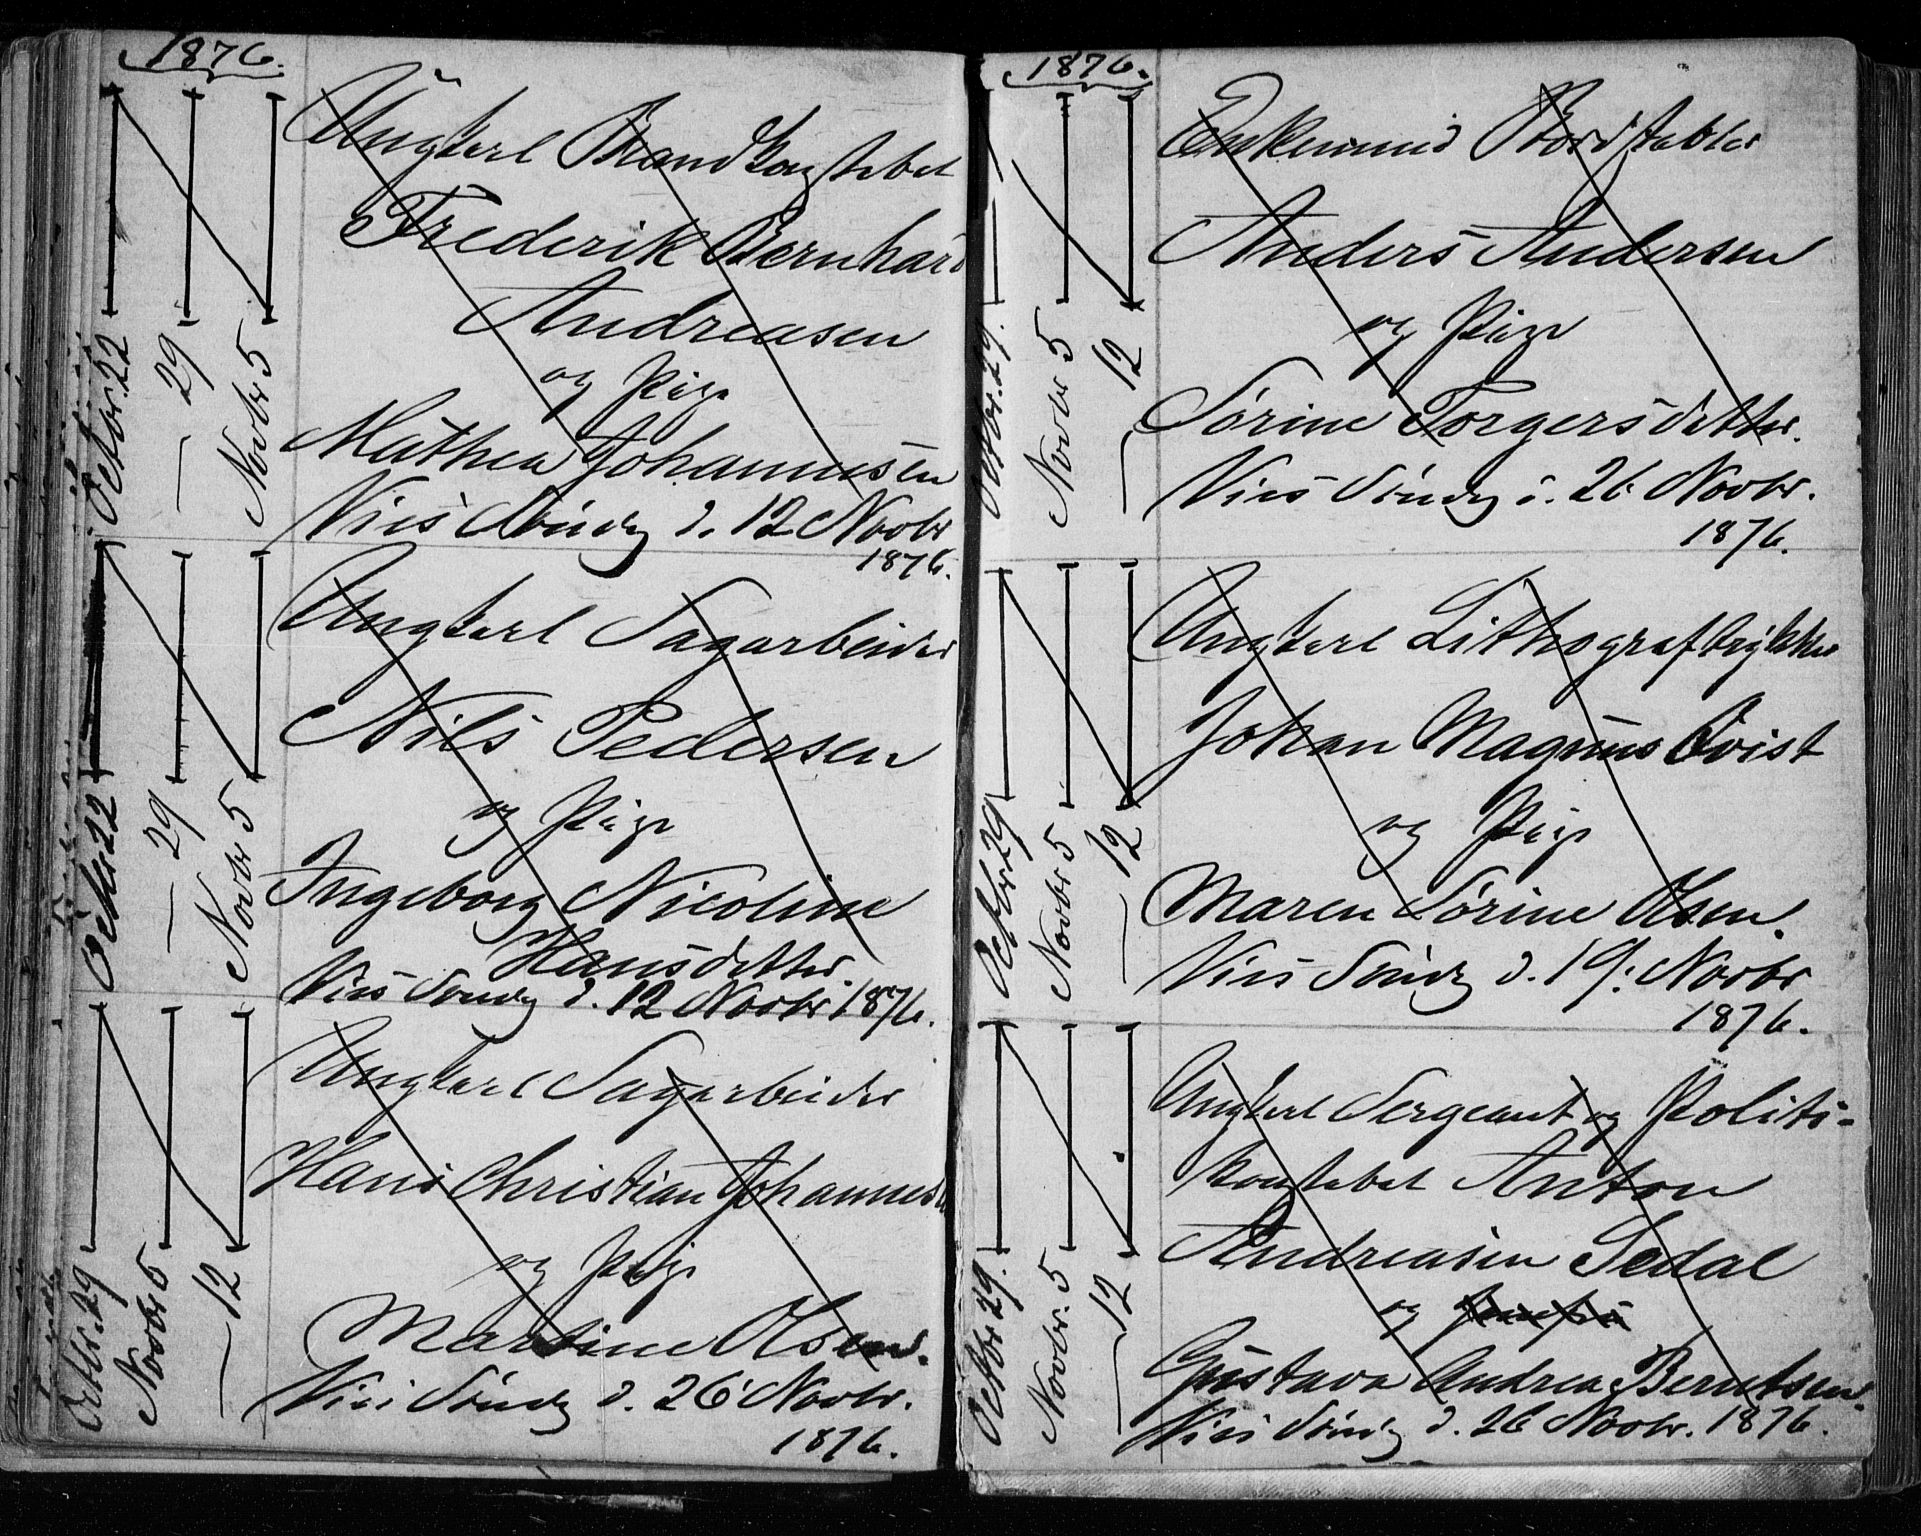 1876.
Octbr. 22
— 29
Novbr 5
Ungkarl Brandkonstabel
Frederik Bernhard
Andreasen
og Pige
Mathea Johannesen
Vies Søndg d. 12 Novbr
1876.
Octbr 22
— 29
Novbr 5
Ungkarl Sagarbeider
Nils Pedersen
og Pige
Ingeborg Nicoline
Hansdatter.
Vies Søndg d. 12 Novbr. 1876.
Octbr. 29
Novbr 5
— 12
Ungkarl Sagarbeider
Hans Christian Johannesen
og Pige
Martine Olsen.
Vies Søndg d. 26 Novbr.
1876.
1876.
Octbr. 29.
Novbr 5
— 12
Enkemand Bordstabler
Anders Andersen
og Pige
Sørine Torgersdatter.
Vies Søndg d. 26 Novbr.
1876.
Octbr 29
Novbr 5
— 12
Ungkarl Lithograftrykker
Johan Magnus Qvist
og Pige
Maren Sørine Olsen.
Vies Søndg d. 19. Novbr
1876.
Octbr 29.
Novbr. 5
— 12
Ungkarl Sergeant og Politi-
konstabel Anton
Andreasen Sedal
og
Gustava Andrea Berntsen.
Vies Søndg d. 26 Novbr. 1876.